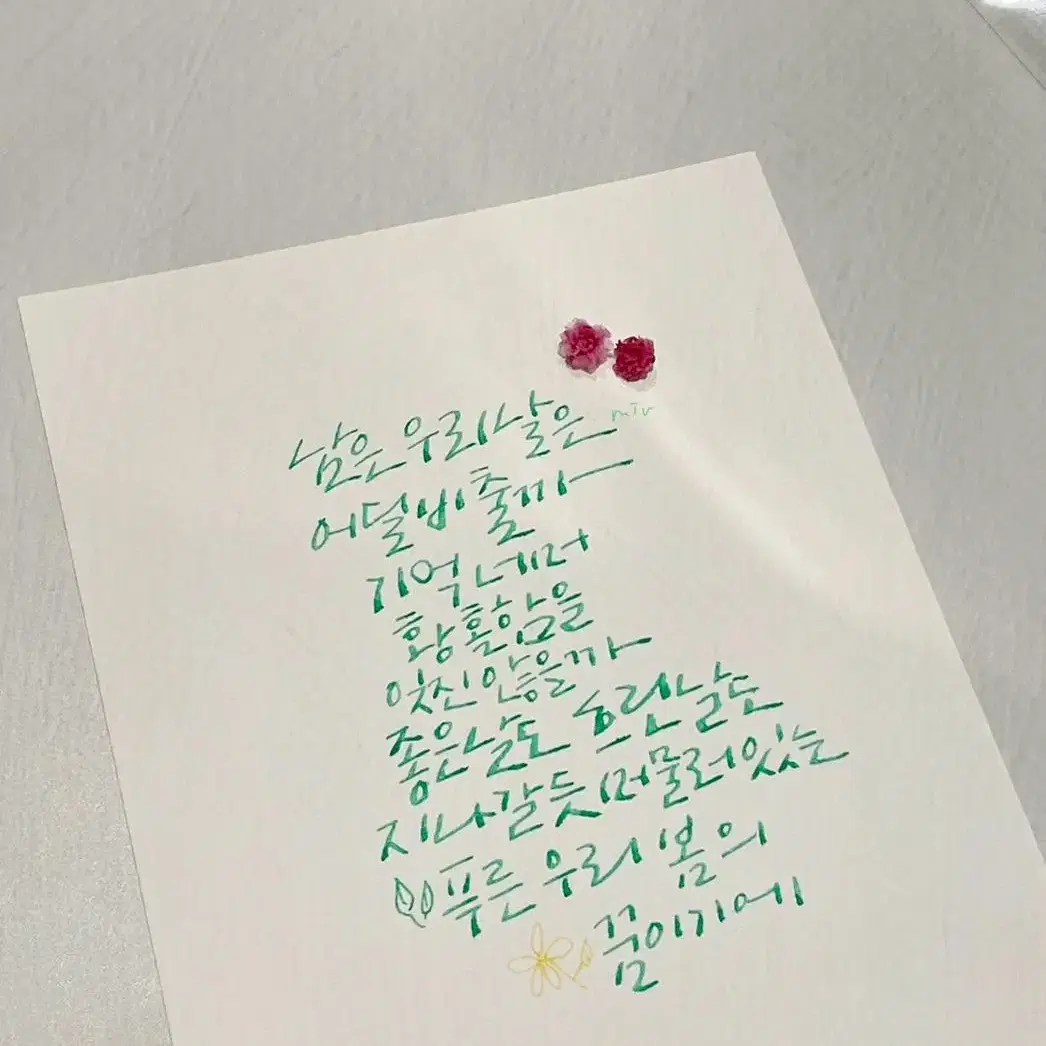 남은 우리 날은
어딜 비출까
기억 너머
황홀함을
잊진 않을까
좋은 날도 흐린 날도
지나갈 듯 머물러 있는
푸른 우리 봄의
꿈이기에